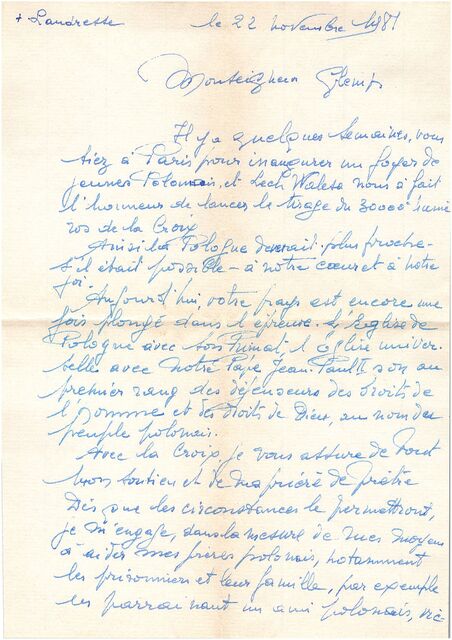 + Landresse le 22 novembre 1981
Monseigneur Glemp
Il y a quelques semaines, vous
étiez à Paris pour inaugurer un foyer de
jeunes Polonais, et Lech Walesa nous a fait
l'honneur de lancer le tirage du 30000e numé
ros de la Croix
Ainsi la Pologne devenait plus proche-
s'il était possible - à notre cœur et à notre
foi.
Aujourd'hui, votre pays est encore une
fois plongé dans l'épreuve. L'Eglise de
Pologne avec son Primat, l'église univer-
selle avec Notre Pape Jean-Paul II son au
premier rang des défenseurs des droits de
l'Homme et des droits de Dieu, au nom du
peuple polonais.
Avec la Croix, je vous assure de tout
mon soutien et de ma prière de prêtre
Dès que les circonstances le permettront,
je m'engage, dans la mesure de mes moyens
à aider mes frères polonais, notamment
les prisonniers et leur famille, par exemple
en parrainant un ami polonais, vic